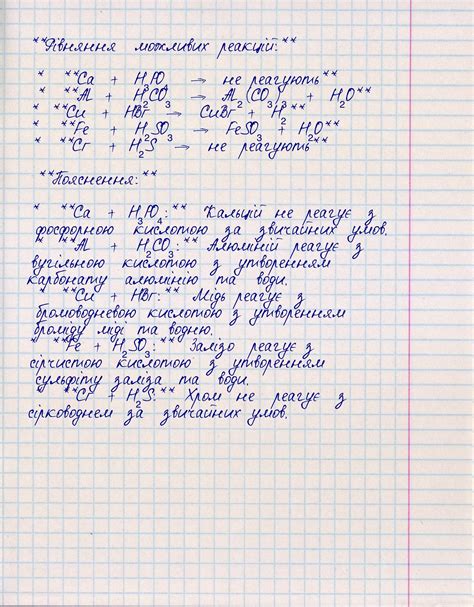 **Рівняння можливих реакцій:**
* **Ca + H₃PO₄ → не реагують**
* **Al + H₂CO₃ → Al₂(CO₃)₃ + H₂O**
* **Cu + HBr → CuBr₂ + H₂**
* **Fe + H₂SO₃ → FeSO₃ + H₂O**
* **Cr + H₂S → не реагують**
**Пояснення:**
* **Ca + H₃PO₄:** Кальцій не реагує з
фосфорною кислотою за звичайних умов.
* **Al + H₂CO₃:** Алюміній реагує з
вугільною кислотою з утворенням
карбонату алюмінію та води.
* **Cu + HBr:** Мідь реагує з
бромоводневою кислотою з утворенням
броміду міді та водню.
* **Fe + H₂SO₃:** Залізо реагує з
сірчистою кислотою з утворенням
сульфіту заліза та води.
* **Cr + H₂S:** Хром не реагує з
сірководнем за звичайних умов.